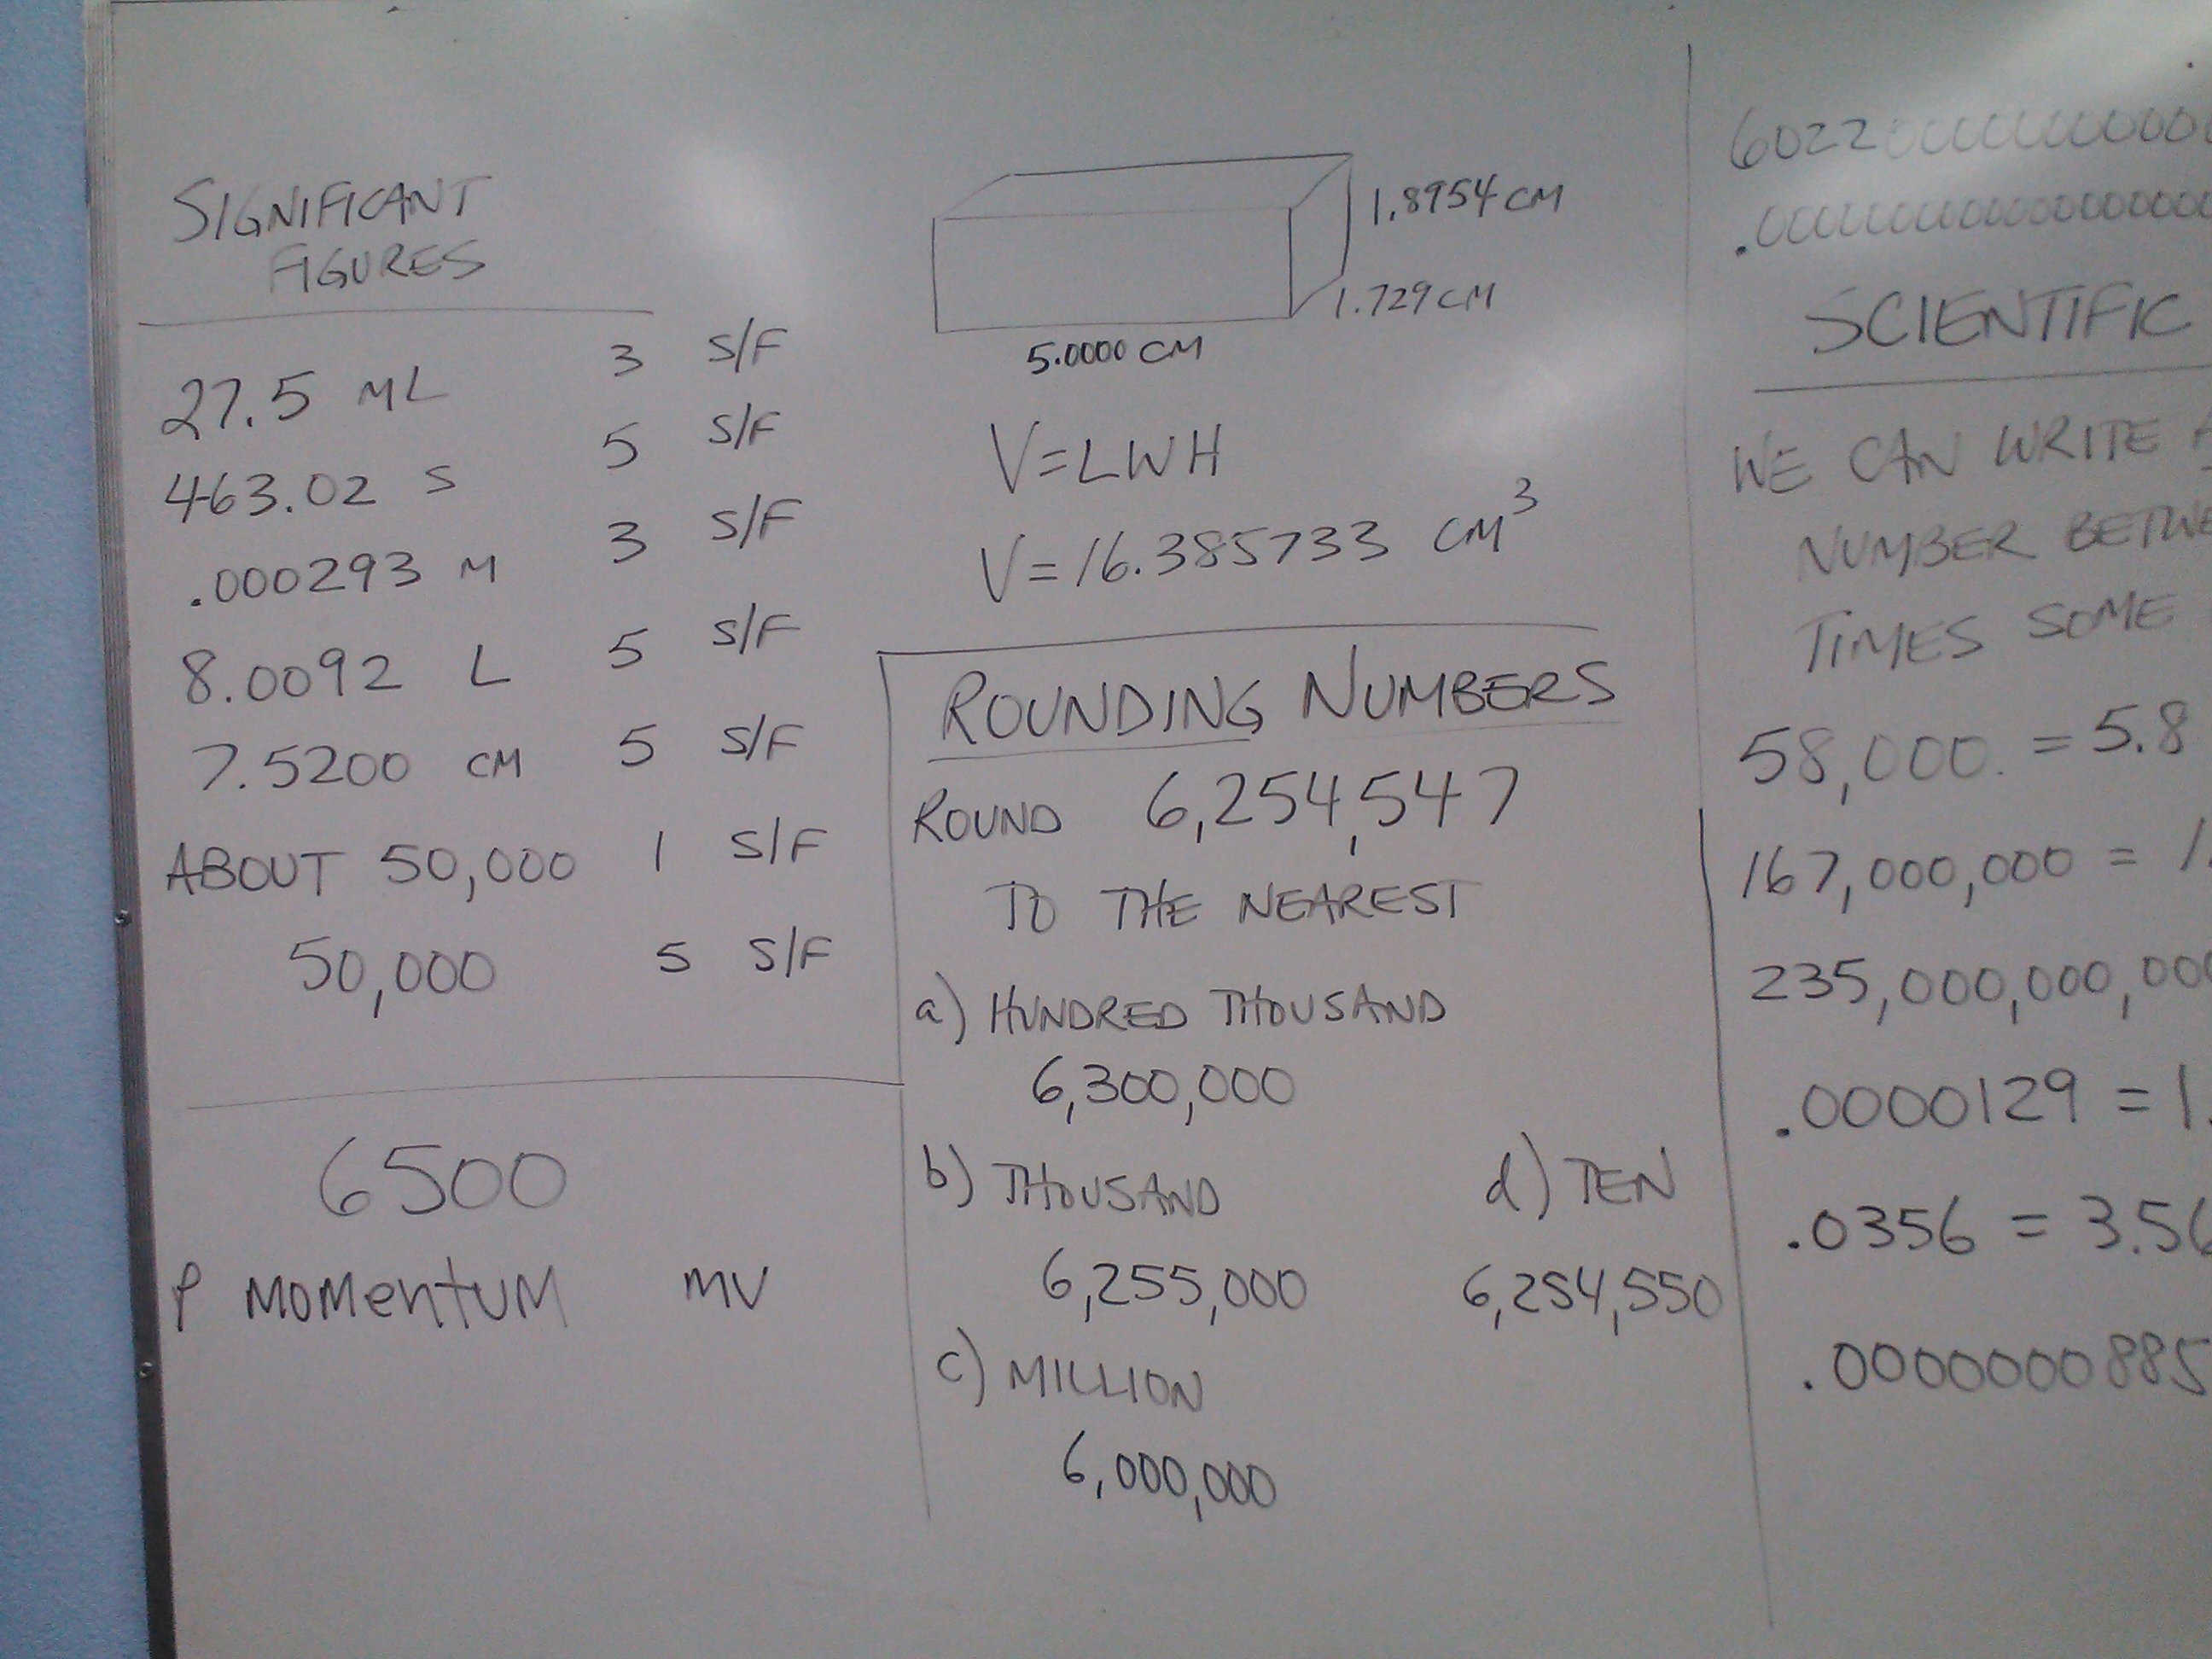 SIGNIFICANT
FIGURES
27.5 ML 3 S/F
463.02 S 5 S/F
.000293 M 3 S/F
8.0092 L 5 S/F
7.5200 CM 5 S/F
ABOUT 50,000 1 S/F
50,000 5 S/F
6500
P MOMENTUM MV
1.8954 CM
1.729 CM
5.0000 CM
V=LWH
V=16.385733 CM³
ROUNDING NUMBERS
ROUND 6,254,547
TO THE NEAREST
a) HUNDRED THOUSAND
6,300,000
b) THOUSAND
6,255,000
c) MILLION
6,000,000
d) TEN
6,254,550
SCIENTIFIC
WE CAN WRITE A
NUMBER
TIMES SOME
58,000. = 5.8
167,000,000 = 1.
235,000,000,000
.0000129 = 1.
.0356 = 3.56
.0000000885